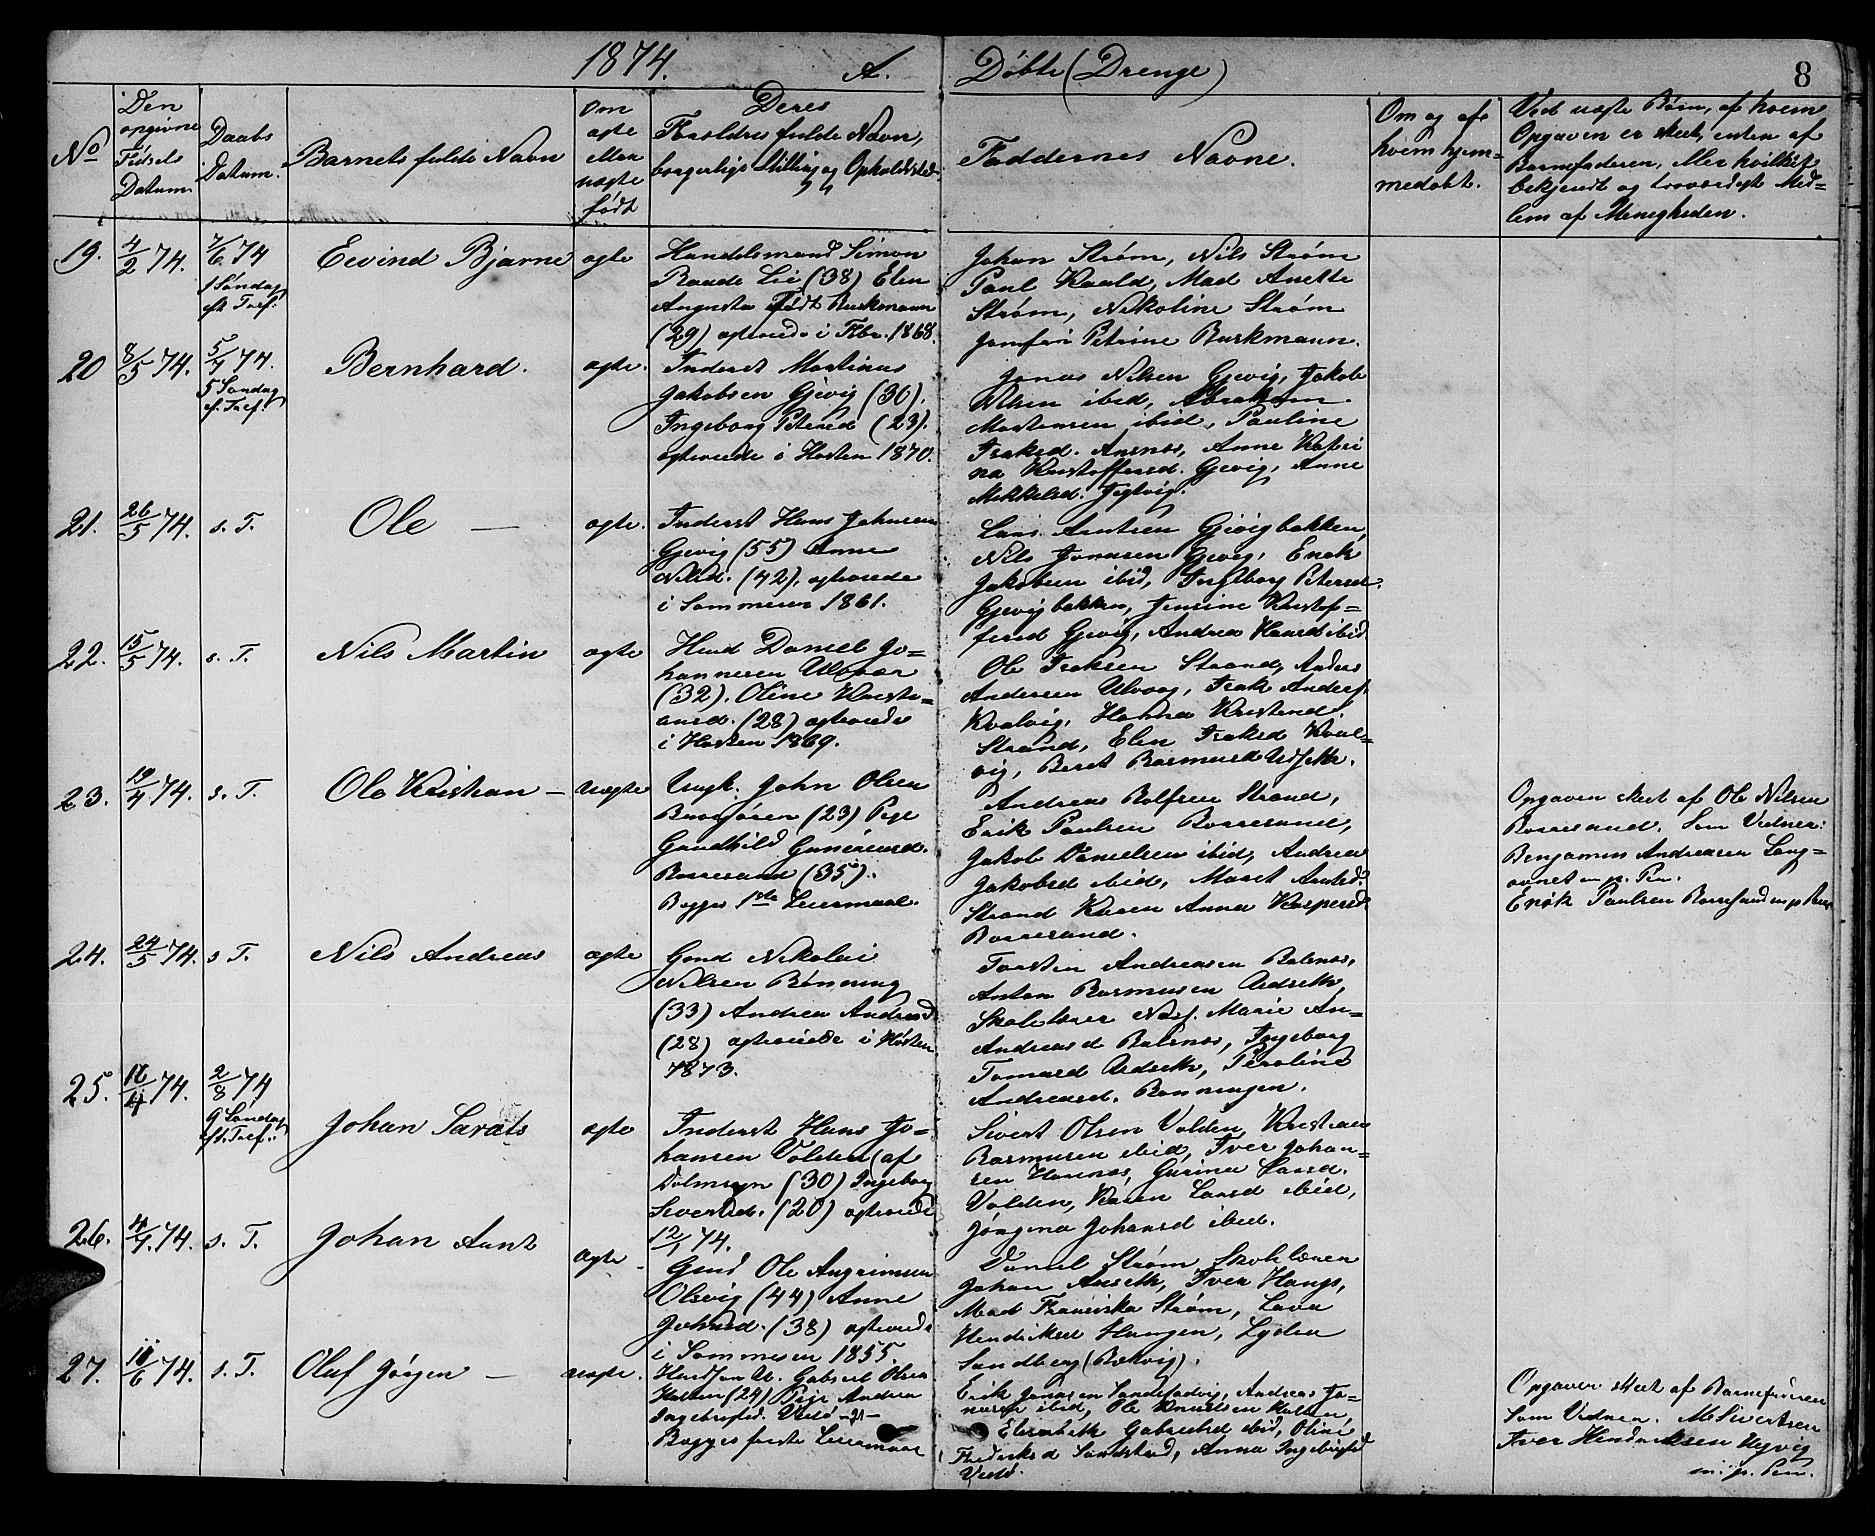 1874. A. Døbte (Drenge) 8
No
Den opgivne Fødsels Datum.
Daabs Datum.
Barnets fulde Navn
Om ægte eller uægte født
Deres Forældres fulde Navn, borgerlige Stilling og Opholdsted.
Faddernes Navne.
Om og af hvem hjemmedøbt.
Ved uægte Børn, af hvem
Opgaven er skeet, enten af
Barnefaderen, eller hvilket
bekjendt og troværdigt Med=
lem af Menigheden.
19. 4/2 74. 7/6 74
1 Søndag
eft. Tref:
Eivind Bjarne ægte
Handelsmand Simon
Raade Lie (38) Elen
Augusta Født Buckmann
(29) ægteviede i Febr. 1868.
Johan Strøm, Nils Strøm
Paul Kaald, Mad Anette
Strøm, Nikoline Strøm
Jomfru Petrine Buckmann.
20 8/5 74. 5/7 74.
5 Søndag
ef. Tref:
Bernhard. ægte.
Inderst Martinus
Jakobsen Gjevig (30).
Ingeborg Petersd (23).
ægteviede i Høsten 1870.
Jonas Nilsen Gjevig, Jakob
Olsen ibid, Abraham
Mortensen ibid, Pauline
Isaksd. Ansnæs, Anne Katri
na Kristoffersd. Gjevig, Anne
Mikkelsd.
21. 26/5 74. s. T. Ole — ægte.
Inderst Hans Johnsen
Gjevig (55) Anne
Nilsd. (42), ægteviede
i Sommeren 1861.
Lars Arntsen Gjevigbakken,
Nils Jonasen Gjevig, Erik
Jakobsen ibid, Ingeborg Petersd.
Gjevigbakken, Jensine Kristof=
fersd Gjevig, Andrea ibid
22. 15/5 74. s. T. Nils Martin ægte
Huusd Daniel Jo=
hannesen Ulvær
(32). Oline Kristi=
ansd. (28) ægteviede
i Høsten 1869.
Ole Isaksen Strand, Anders
Andersen Ulvær, Isak Anders.
Kvalvig, Hanna Kristensd.
Strand, Elen Isaksd Kval=
vig, Beret Rasmusd
23. 19/4 74. s. T. Ole Kristian — uægte
Ungk. John Olsen
(23) Pige
Gundhild Guneriusd.
Borresand (35).
Begges 1ste Leiermaal.
Andreas Rolfsen Strand,
Erik Paulsen Borresand,
Jakob Danielsen ibid, Andrea
Jakobsd ibid, Maret Arntsd.
Strand Karen Anna Kaspersd.
Borresand.
Opgaven skeet af Ole Nilsen
Borresand. Som Vidner:
Benjamin Andreasen Lang=
m. p. Pen.
Erik Paulsen Borresand m. p. Pen
24. 24/5 74. s. T. Nils Andreas ægte
Gmd Nikolai
Nilsen Rønning
(33) Andrea Andreasd
(28) ægteviede i Høsten
1873.
Torsten Andreasen Balsnæs,
Anton Rasmusen Aidseth,
Skolelærer Marie An=
Andreasd Balsnæs, Ingeborg
Tomasd Aidseth, Peroline
Andreasd. Rønningen.
25. 18/4 74. 2/8 74
9 Søndag
eft. Tref:
Johan Særæts ægte
Inderst Hans Jo=
hansen Volden (af
Dolmsøyn (30) Ingeborg
Sivertsd. (20) ægteviede
12/1 74.
Sivert Olsen Volden, Kristian
Rasmusen ibid, Iver Johan=
sen Hamnæs, Gurina Larsd.
Volden, Karen Larsd ibid,
Jørgina Johansd ibid.
26. 4/7. 74. s. T. Johan Arnt ægte
Gmd Ole Angrimsen
Olsvig (44) Anne
Johnsd. (38) ægteviede
i Sommeren 1855.
Daniel Strøm, Skolelærer
Johan Auseth, Iver Haugs,
Mad Franciska Strøm, Lava
Hendriksd Haugen, Lydia
Sandberg (Bekvig).
27. 11/6 74. s. T. Oluf Jørgen — uægte.
Gabriel Olsen
Holten (24) Pige Andrea
Ingebrigtsd. Vedø
Begges første Leiermaal
Erik Jonasen Andreas Jo=
nasen ibid, Ole Knudsen Holten,
Elisabeth Gabrielsd ibid, Oline
Frederiksd Sandstad, Anna Ingebrigtsd
Vedø.
Opgaven skeet af Barnefaderen
Som Vidner. M Sivertsen
Iver Hendriksen Ugvig
m. p. Pen.